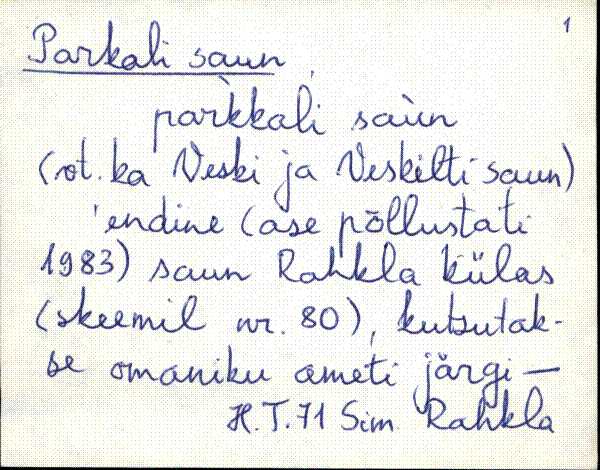 1
Parkali saun,
par̀kkali saùn
(vt. ka Veski ja Veskilti saun)
'endine (ase põllustati
1983) saun Rahkla külas
(skeemil nr. 80), kutsutak-
se omaniku ameti järgi —
H.T. 71 Sim Rahkla